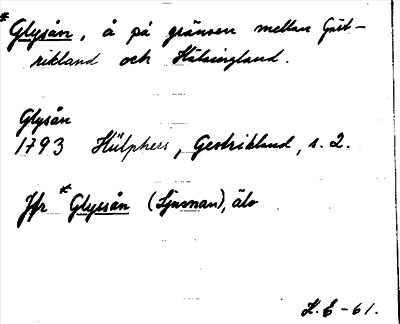 *Glysån, å på gränsen mellan Gäst-
rikland och Hälsingland.
Glysån
1793 Hülphers, Gestrikland, s. 2.
Jfr *Glyssån (Ljusnan), älv
K.E-61.